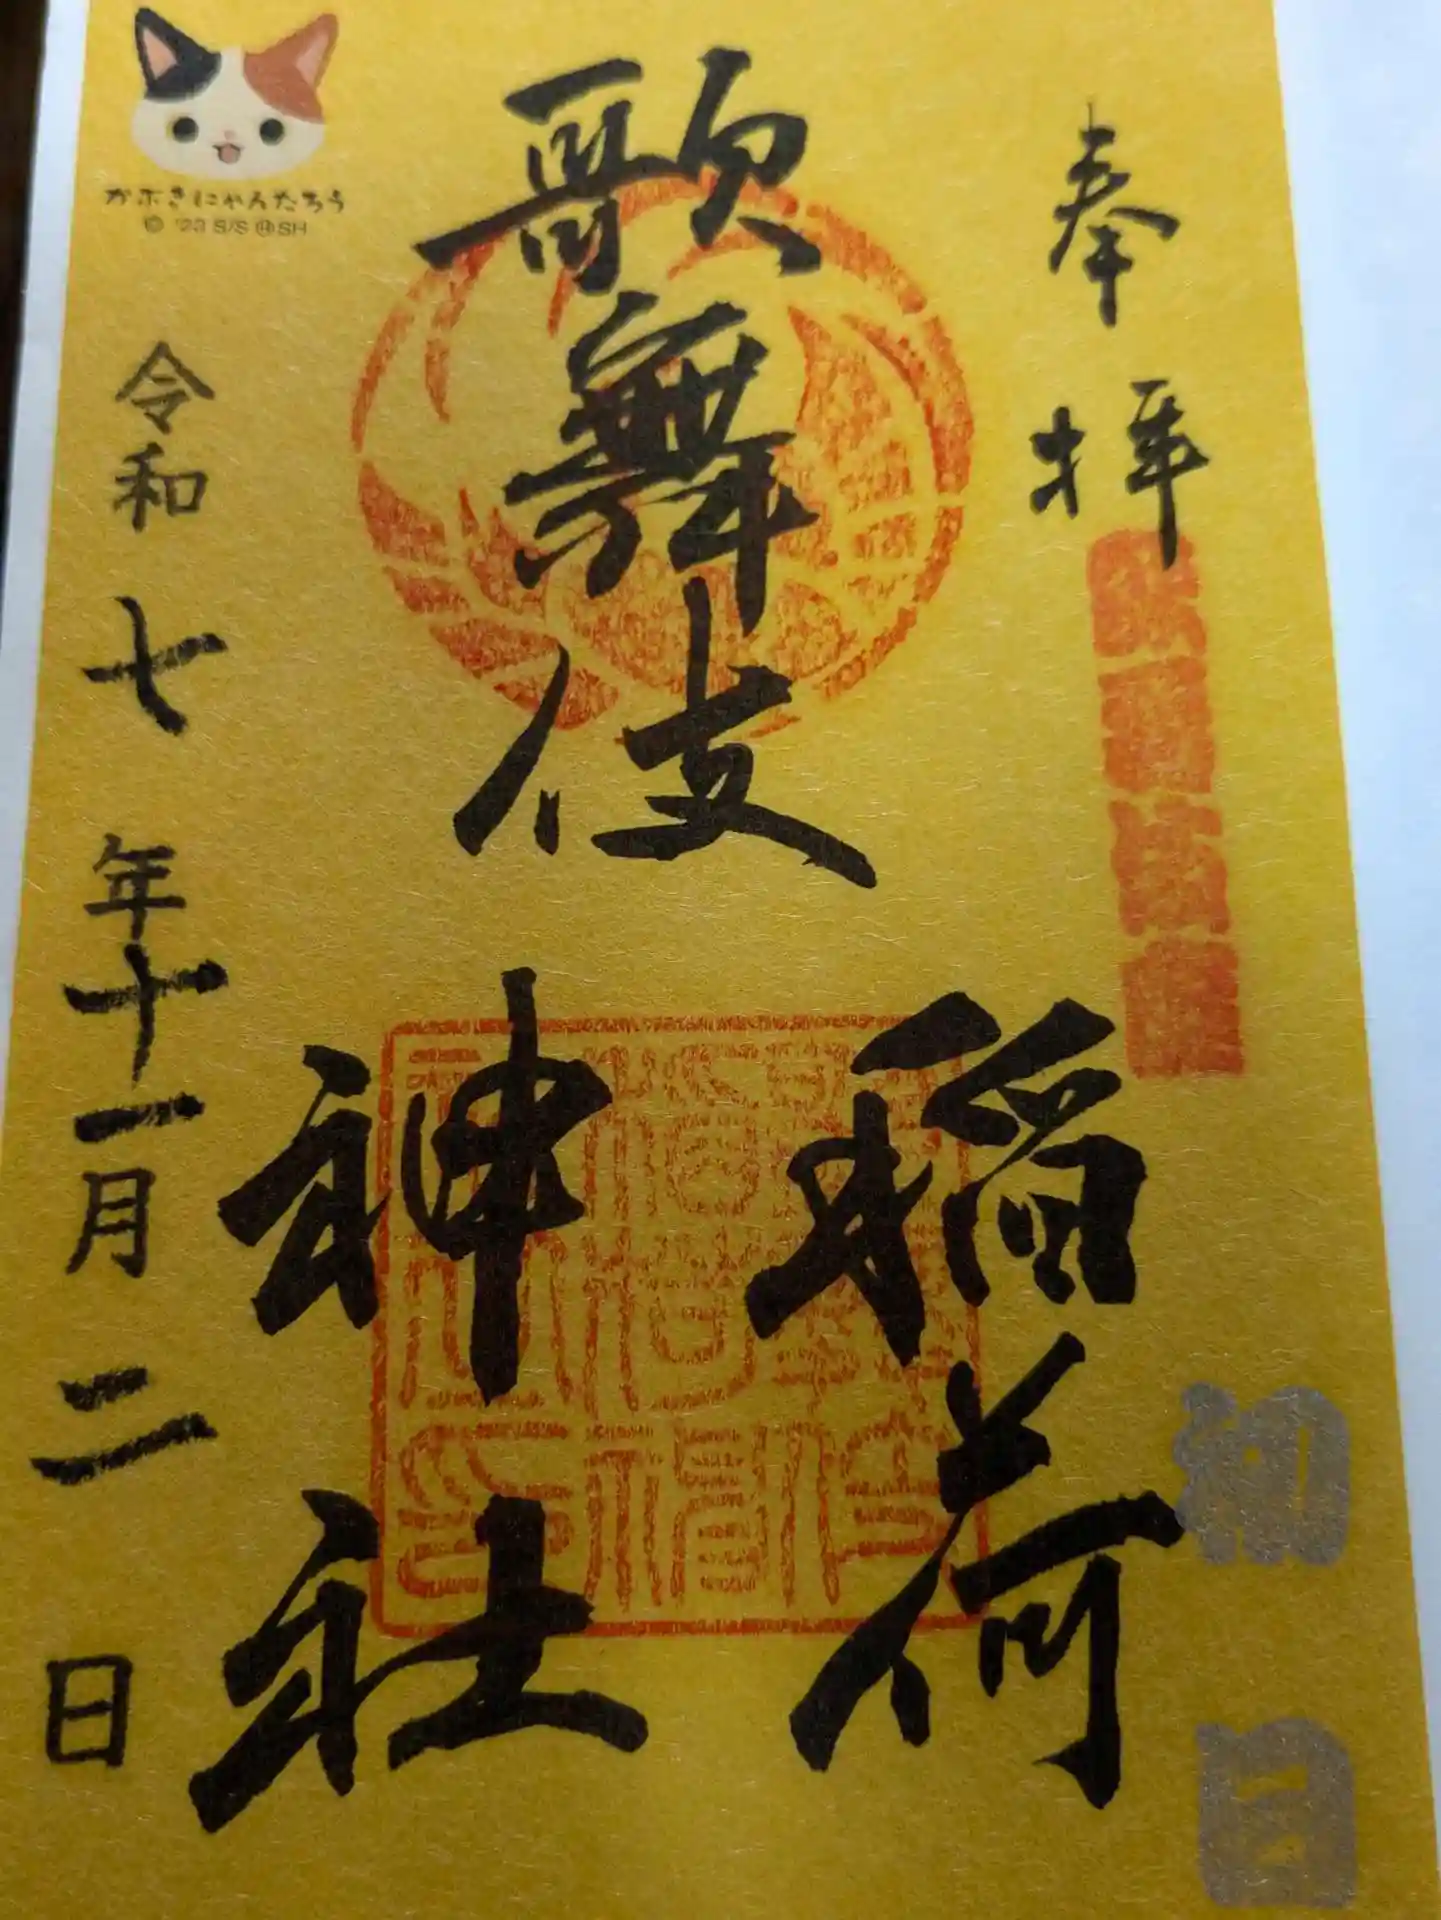 奉拝
歌舞伎
稲荷
神社
令和七年十一月二日
かぶきにゃんたろう
© '23 S/S Ⓗ SH
初日